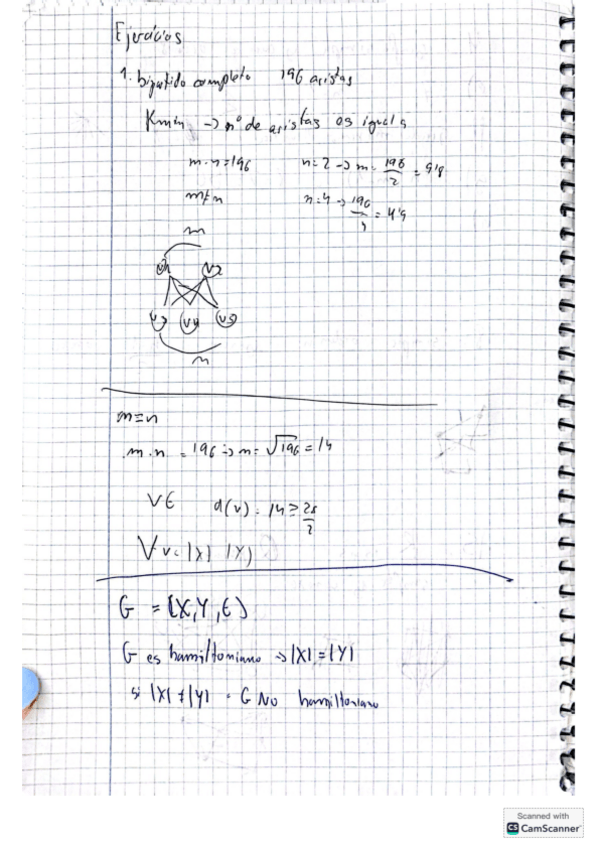 Ejercicios
1. bipartido completo 196 aristas
Km,n → nº de aristas es igual a
m·n=196 n=2 → m= 196/2 = 98
m≠n n=4 → 196/4 = 49
m
V1 V2
V3 V4 V5
n
m=n
m·n = 196 → m= √196 = 14
d(v) = 14 ≥ 28/2
|X| |Y|
G = (X,Y,E)
G es hamiltoniano → |X|=|Y|
si |X|≠|Y| = G NO hamiltoniano
Scanned with
CS CamScanner